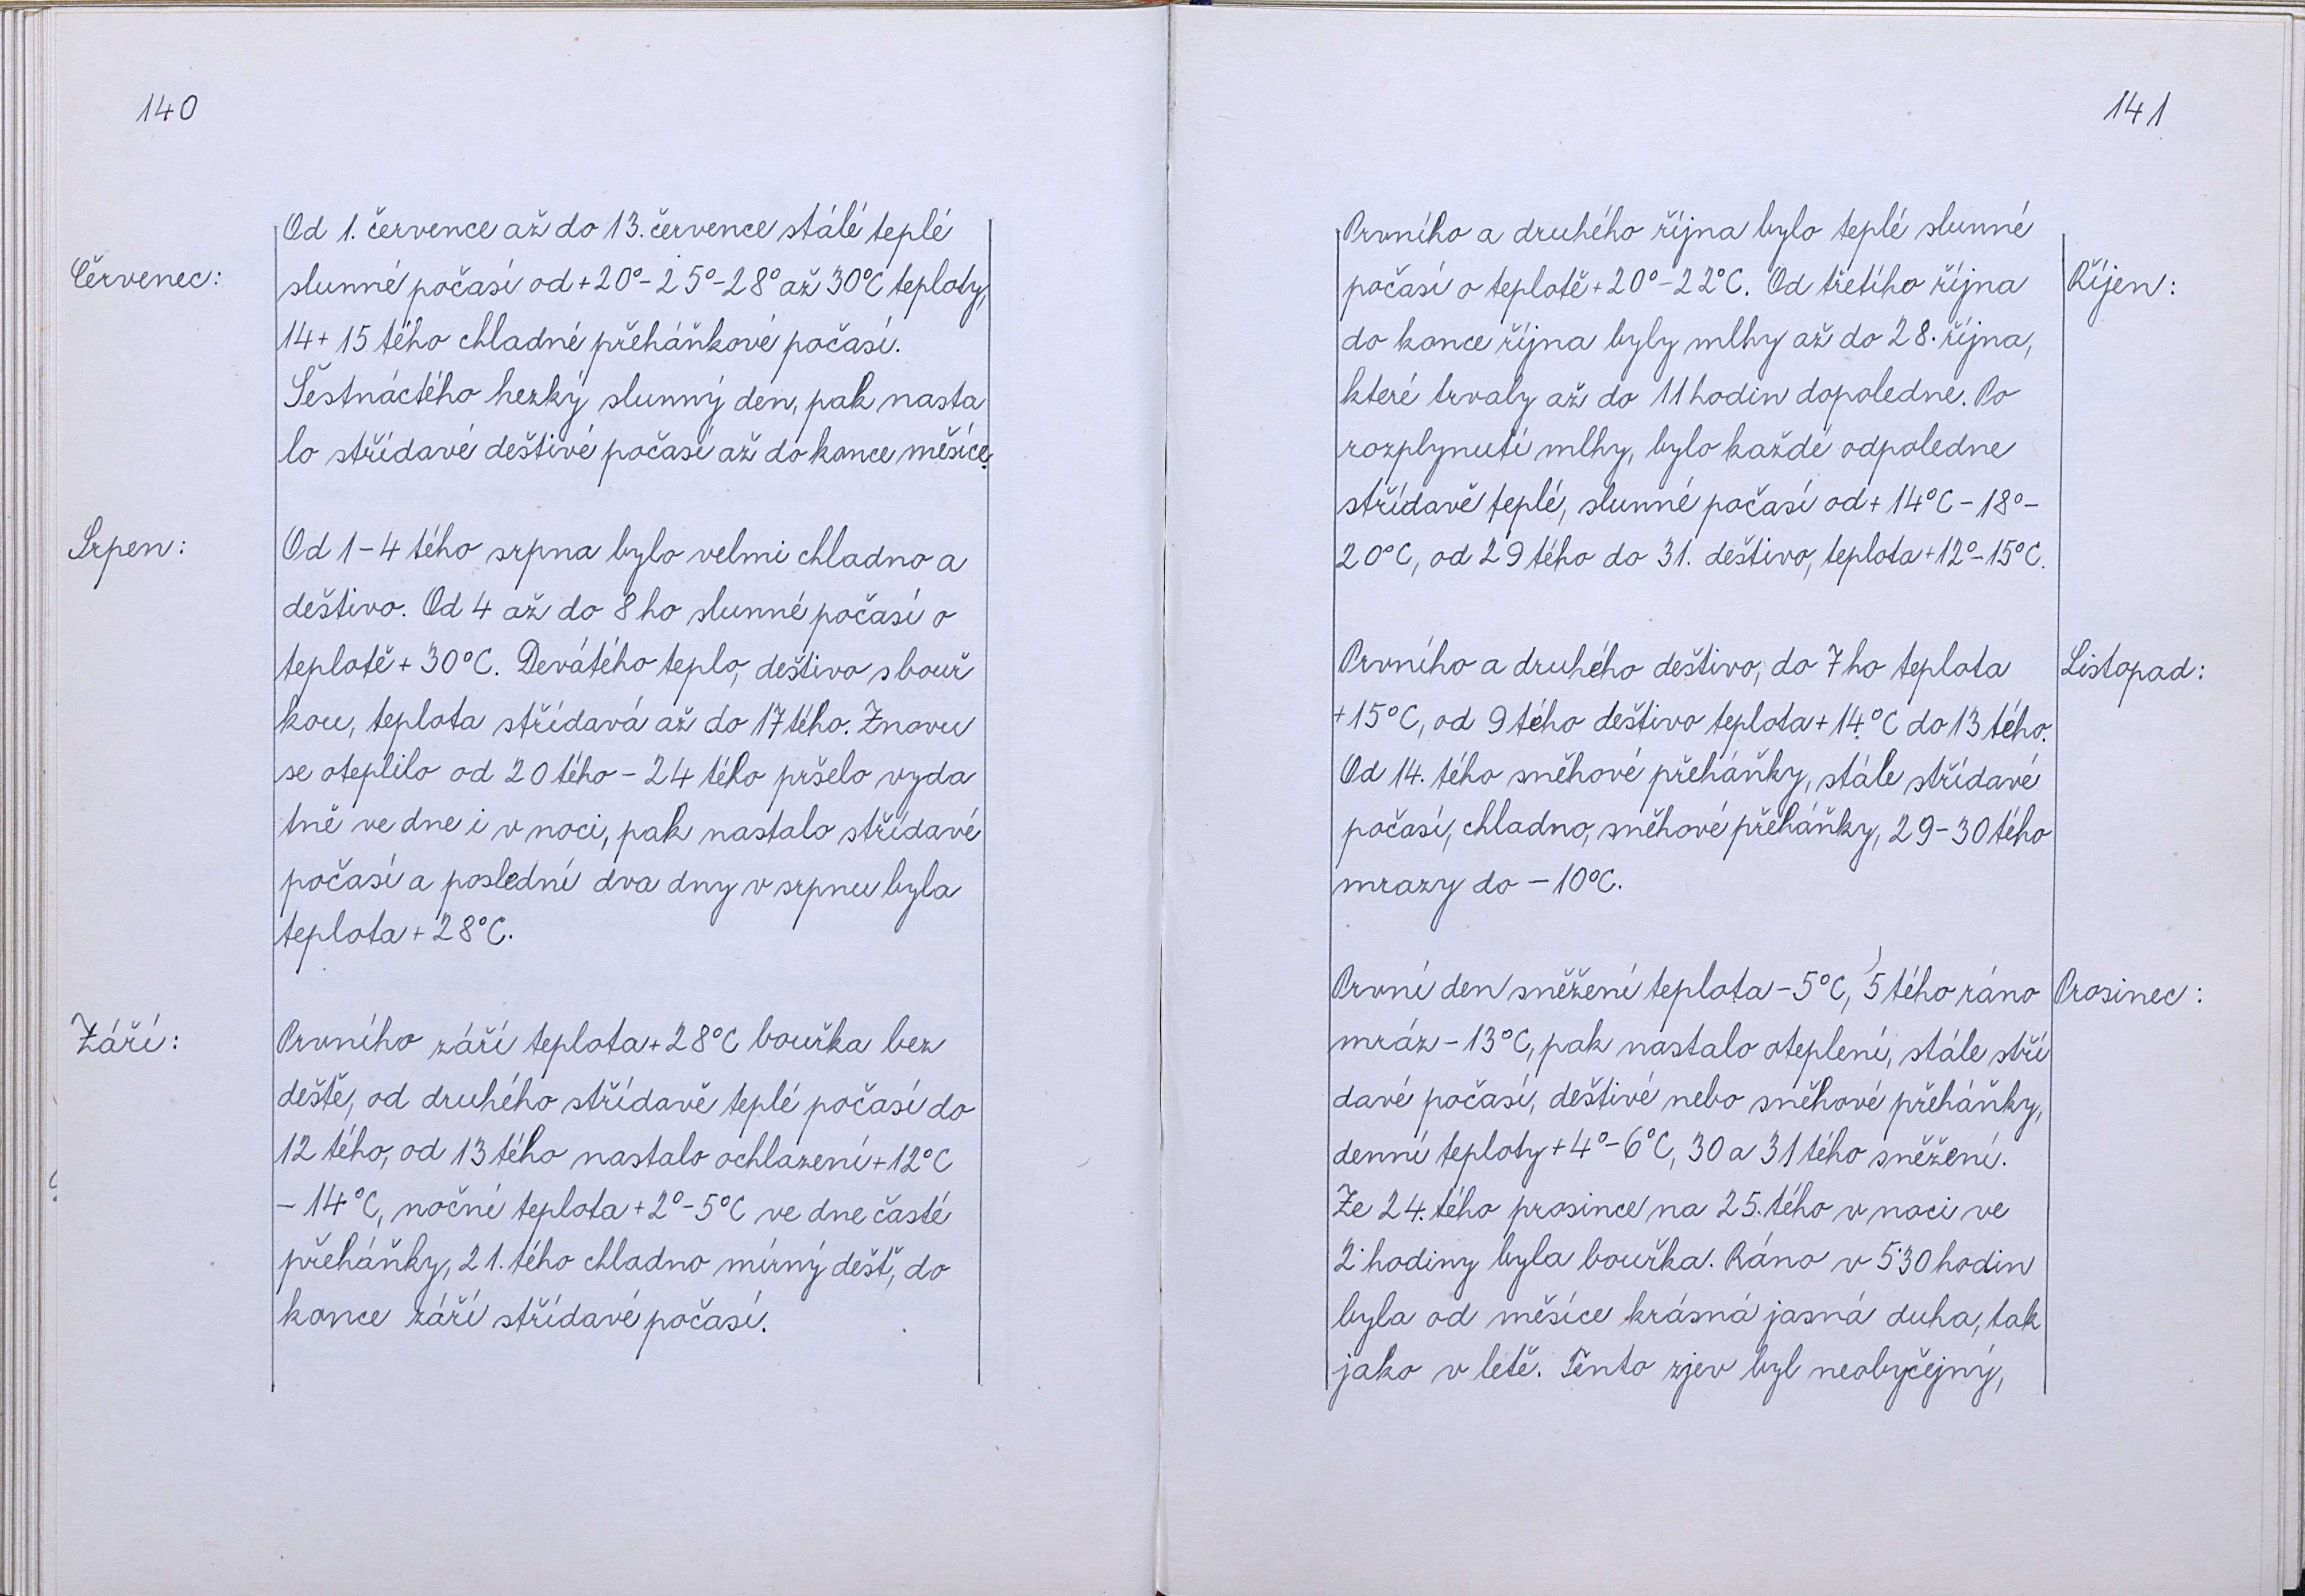 140
Červenec:
Od 1. července až do 13. července stálé teplé
slunné počasí od +20°-25°-28° až 30°C teploty,
14+15 tého chladné přeháňkové počasí.
Šestnáctého hezký slunný den, pak nasta
lo střídavé deštivé počasí až do konce měsíce.
Srpen:
Od 1-4 tého srpna bylo velmi chladno a
deštivo. Od 4 až do 8 ho slunné počasí o
teplotě +30°C. Devátého teplo, deštivo s bouř
kou, teplota střídavá až do 17 tého. Znovu
se oteplilo od 20 tého - 24 tého pršelo vyda
tně ve dne i v noci, pak nastalo střídavé
počasí a poslední dva dny v srpnu byla
teplota +28°C.
Září:
Prvního září teplota +28°C bouřka bez
deště, od druhého střídavě teplé počasí do
12 tého, od 13 tého nastalo ochlazení +12°C
- 14°C, noční teplota +2°-5°C ve dne časté
přeháňky, 21. tého chladno mírný déšť, do
konce září střídavé počasí.
141
Říjen:
Prvního a druhého října bylo teplé slunné
počasí o teplotě +20°-22°C. Od třetího října
do konce října byly mlhy až do 28. října,
které trvaly až do 11 hodin dopoledne. Po
rozplynutí mlhy, bylo každé odpoledne
střídavě teplé, slunné počasí od +14°C-18°-
20°C, od 29 tého do 31. deštivo, teplota +12°-15°C.
Listopad:
Prvního a druhého deštivo, do 7 ho teplota
+15°C, od 9 tého deštivo teplota +14°C do 13 tého.
Od 14. tého sněhové přeháňky, stále střídavé
počasí, chladno, sněhové přeháňky, 29-30 tého
mrazy do -10°C.
Prosinec:
První den sněžení teplota -5°C, 5 tého ráno
mráz -13°C, pak nastalo oteplení, stále stří
davé počasí, deštivé nebo sněhové přeháňky,
denní teploty +4°-6°C, 30 a 31 tého sněžení.
Ze 24. tého prosince na 25. tého v noci ve
2 hodiny byla bouřka. Ráno v 5˙30 hodin
byla od měsíce krásná jasná duha, tak
jako v letě. Tento zjev byl neobyčejný,